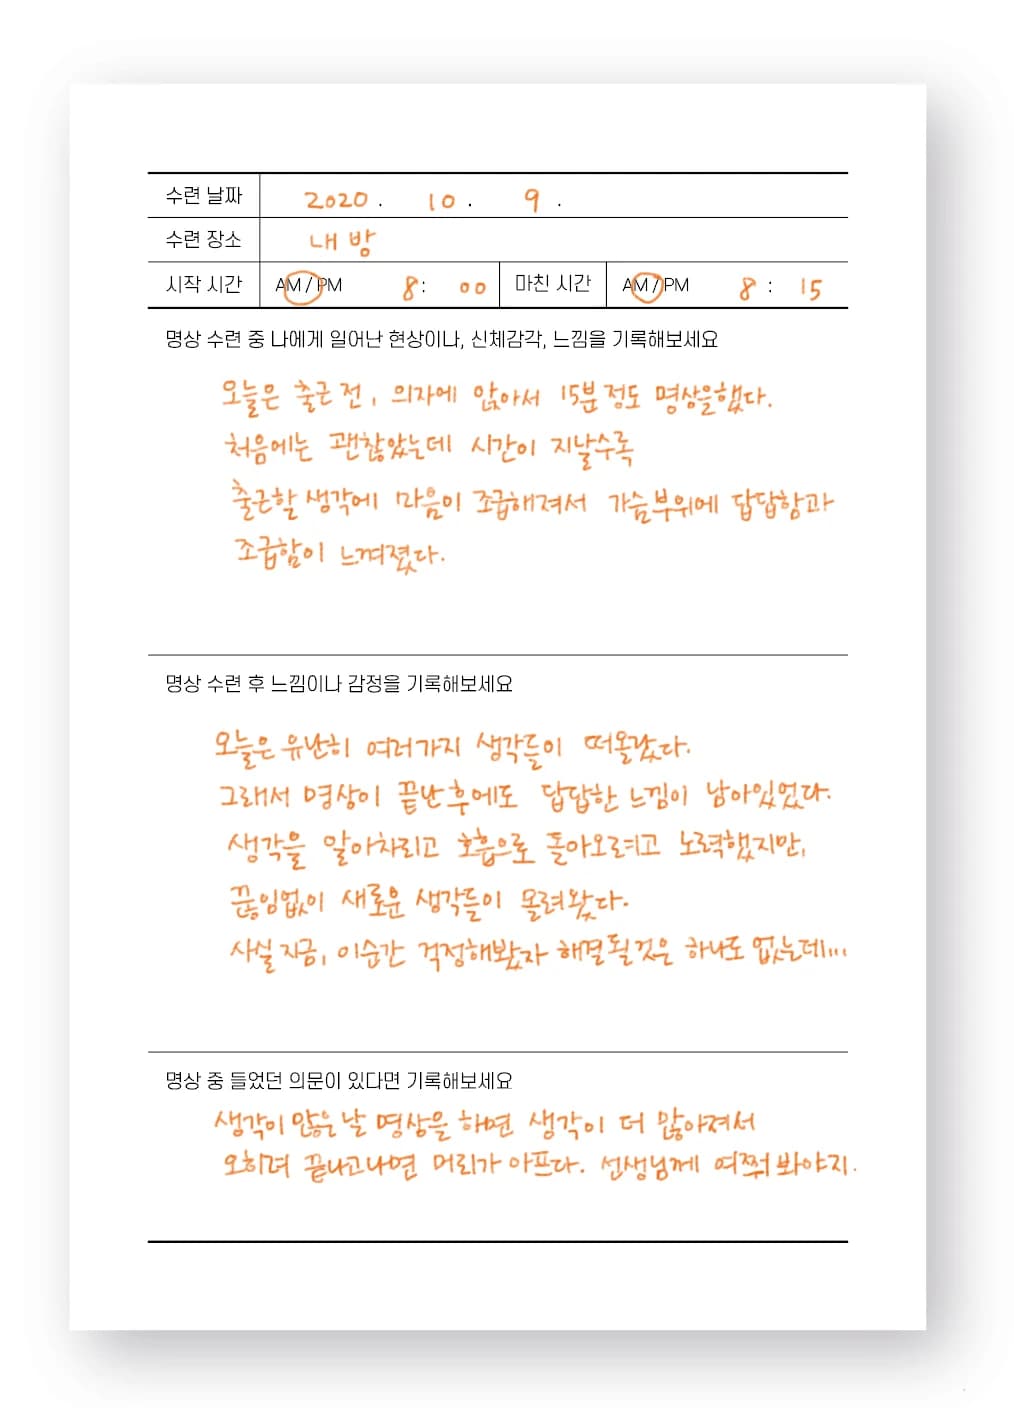 수련 날짜 2020. 10. 9.
수련 장소 내 방
시작 시간 AM / PM 8: 00 마친 시간 AM / PM 8 : 15
명상 수련 중 나에게 일어난 현상이나, 신체감각, 느낌을 기록해보세요
오늘은 출근 전, 의자에 앉아서 15분 정도 명상을 했다.
처음에는 괜찮았는데 시간이 지날수록
출근할 생각에 마음이 조급해져서 가슴부위에 답답함과
조급함이 느껴졌다.
명상 수련 후 느낌이나 감정을 기록해보세요
오늘은 유난히 여러가지 생각들이 떠올랐다.
그래서 명상이 끝난 후에도 답답한 느낌이 남아있었다.
생각을 알아차리고 호흡으로 돌아오려고 노력했지만,
끊임없이 새로운 생각들이 올려왔다.
사실 지금, 이순간 걱정해봤자 해결될것은 하나도 없는데...
명상 중 들었던 의문이 있다면 기록해보세요
생각이 많은 날 명상을 하면 생각이 더 많아져서
오히려 끝나고나면 머리가 아프다. 선생님께 여쭤 봐야지.